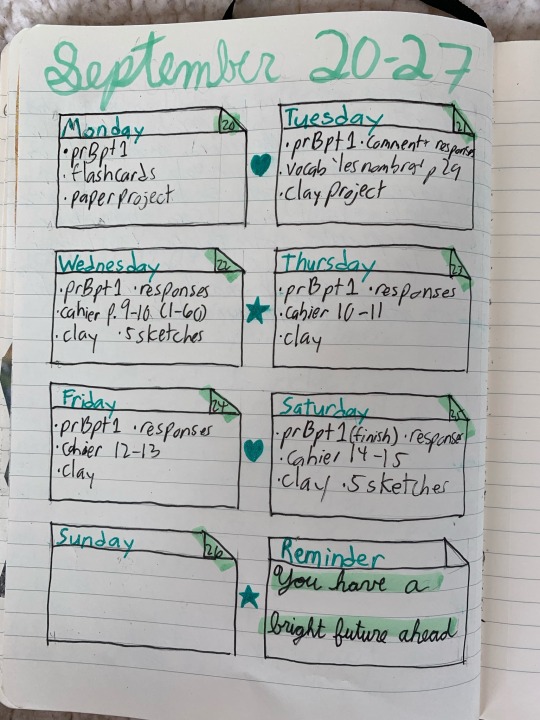 September 20-27
Monday 20
• prBpt1
• flashcards
• paper project
Tuesday 21
• prBpt1 • Comment + response
• vocab "les nombres" p 29
• clay project
Wednesday 22
• prBpt1 • responses
• cahier p. 9-10 (1-60)
• clay • 5 sketches
Thursday 23
• prBpt1 • responses
• cahier 10-11
• clay
Friday 24
• prBpt1 • responses
• cahier 12-13
• clay
Saturday 25
• prBpt1 (finish) • response
• cahier 14-15
• clay • 5 sketches
Sunday 26
Reminder
You have a
bright future ahead